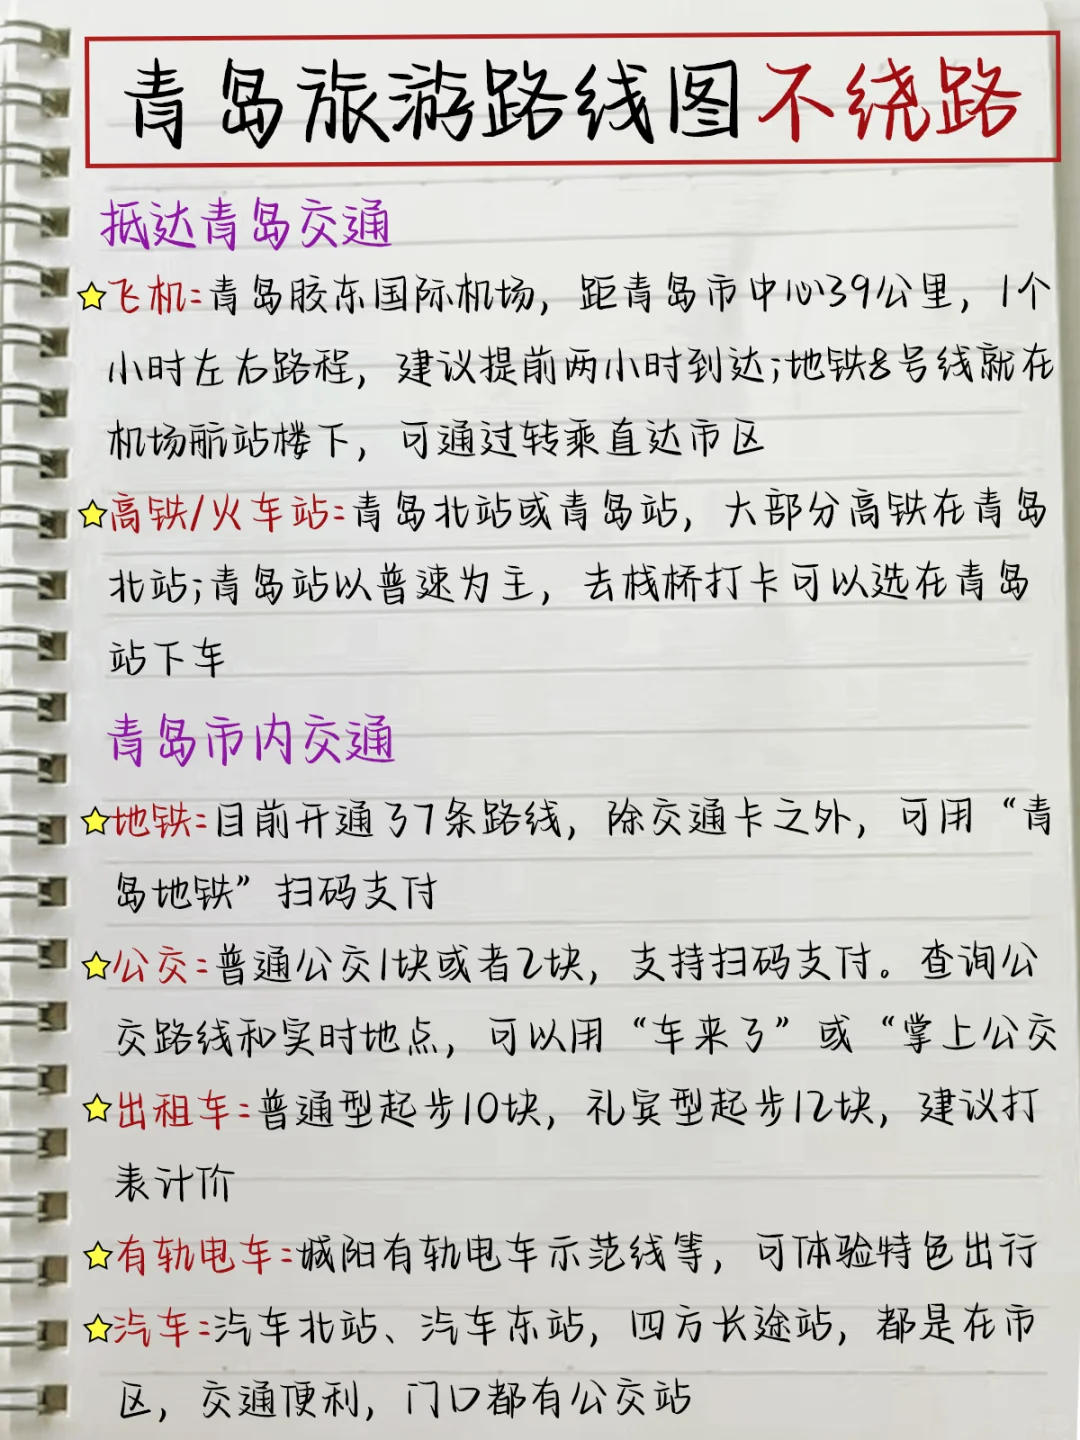 青岛旅游路线图不绕路
抵达青岛交通
飞机:青岛胶东国际机场，距青岛市中心39公里，1个
小时左右路程，建议提前两小时到达;地铁8号线就在
机场航站楼下，可通过转乘直达市区
高铁/火车站:青岛北站或青岛站，大部分高铁在青岛
北站;青岛站以普速为主，去栈桥打卡可以选在青岛
站下车
青岛市内交通
地铁:目前开通了7条路线，除交通卡之外，可用“青
岛地铁”扫码支付
公交:普通公交1块或者2块，支持扫码支付。查询公
交路线和实时地点，可以用“车来了”或“掌上公交
出租车:普通型起步10块，礼宾型起步12块，建议打
表计价
有轨电车:城阳有轨电车示范线等，可体验特色出行
汽车:汽车北站、汽车东站，四方长途站，都是在市
区，交通便利，门口都有公交站